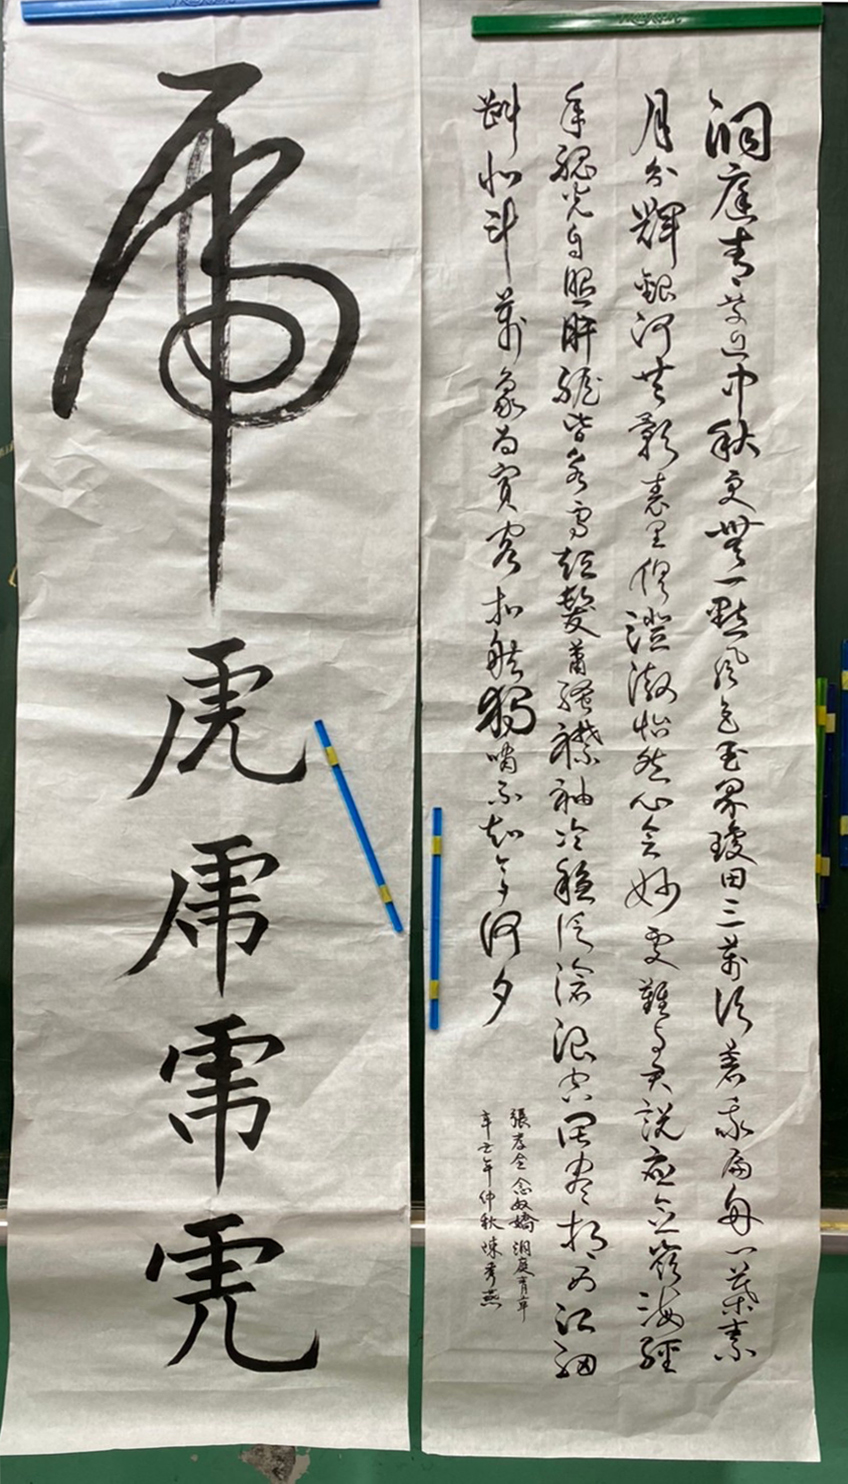 洞庭青草近中秋更無一點風色玉界瓊田三萬頃著我扁舟一葉素
月分輝銀河共影表里俱澄澈怡然心會妙處難與君說應念嶺海經
年孤光自照肝膽皆冰雪短髮蕭騷襟袖冷穩泛滄浪空闊盡挹西江細
斟北斗萬象為賓客扣舷獨嘯不知今何夕
張孝念奴嬌洞庭青草
辛丑年仲秋陳秀燕
虎
虎
虎
虎
虎